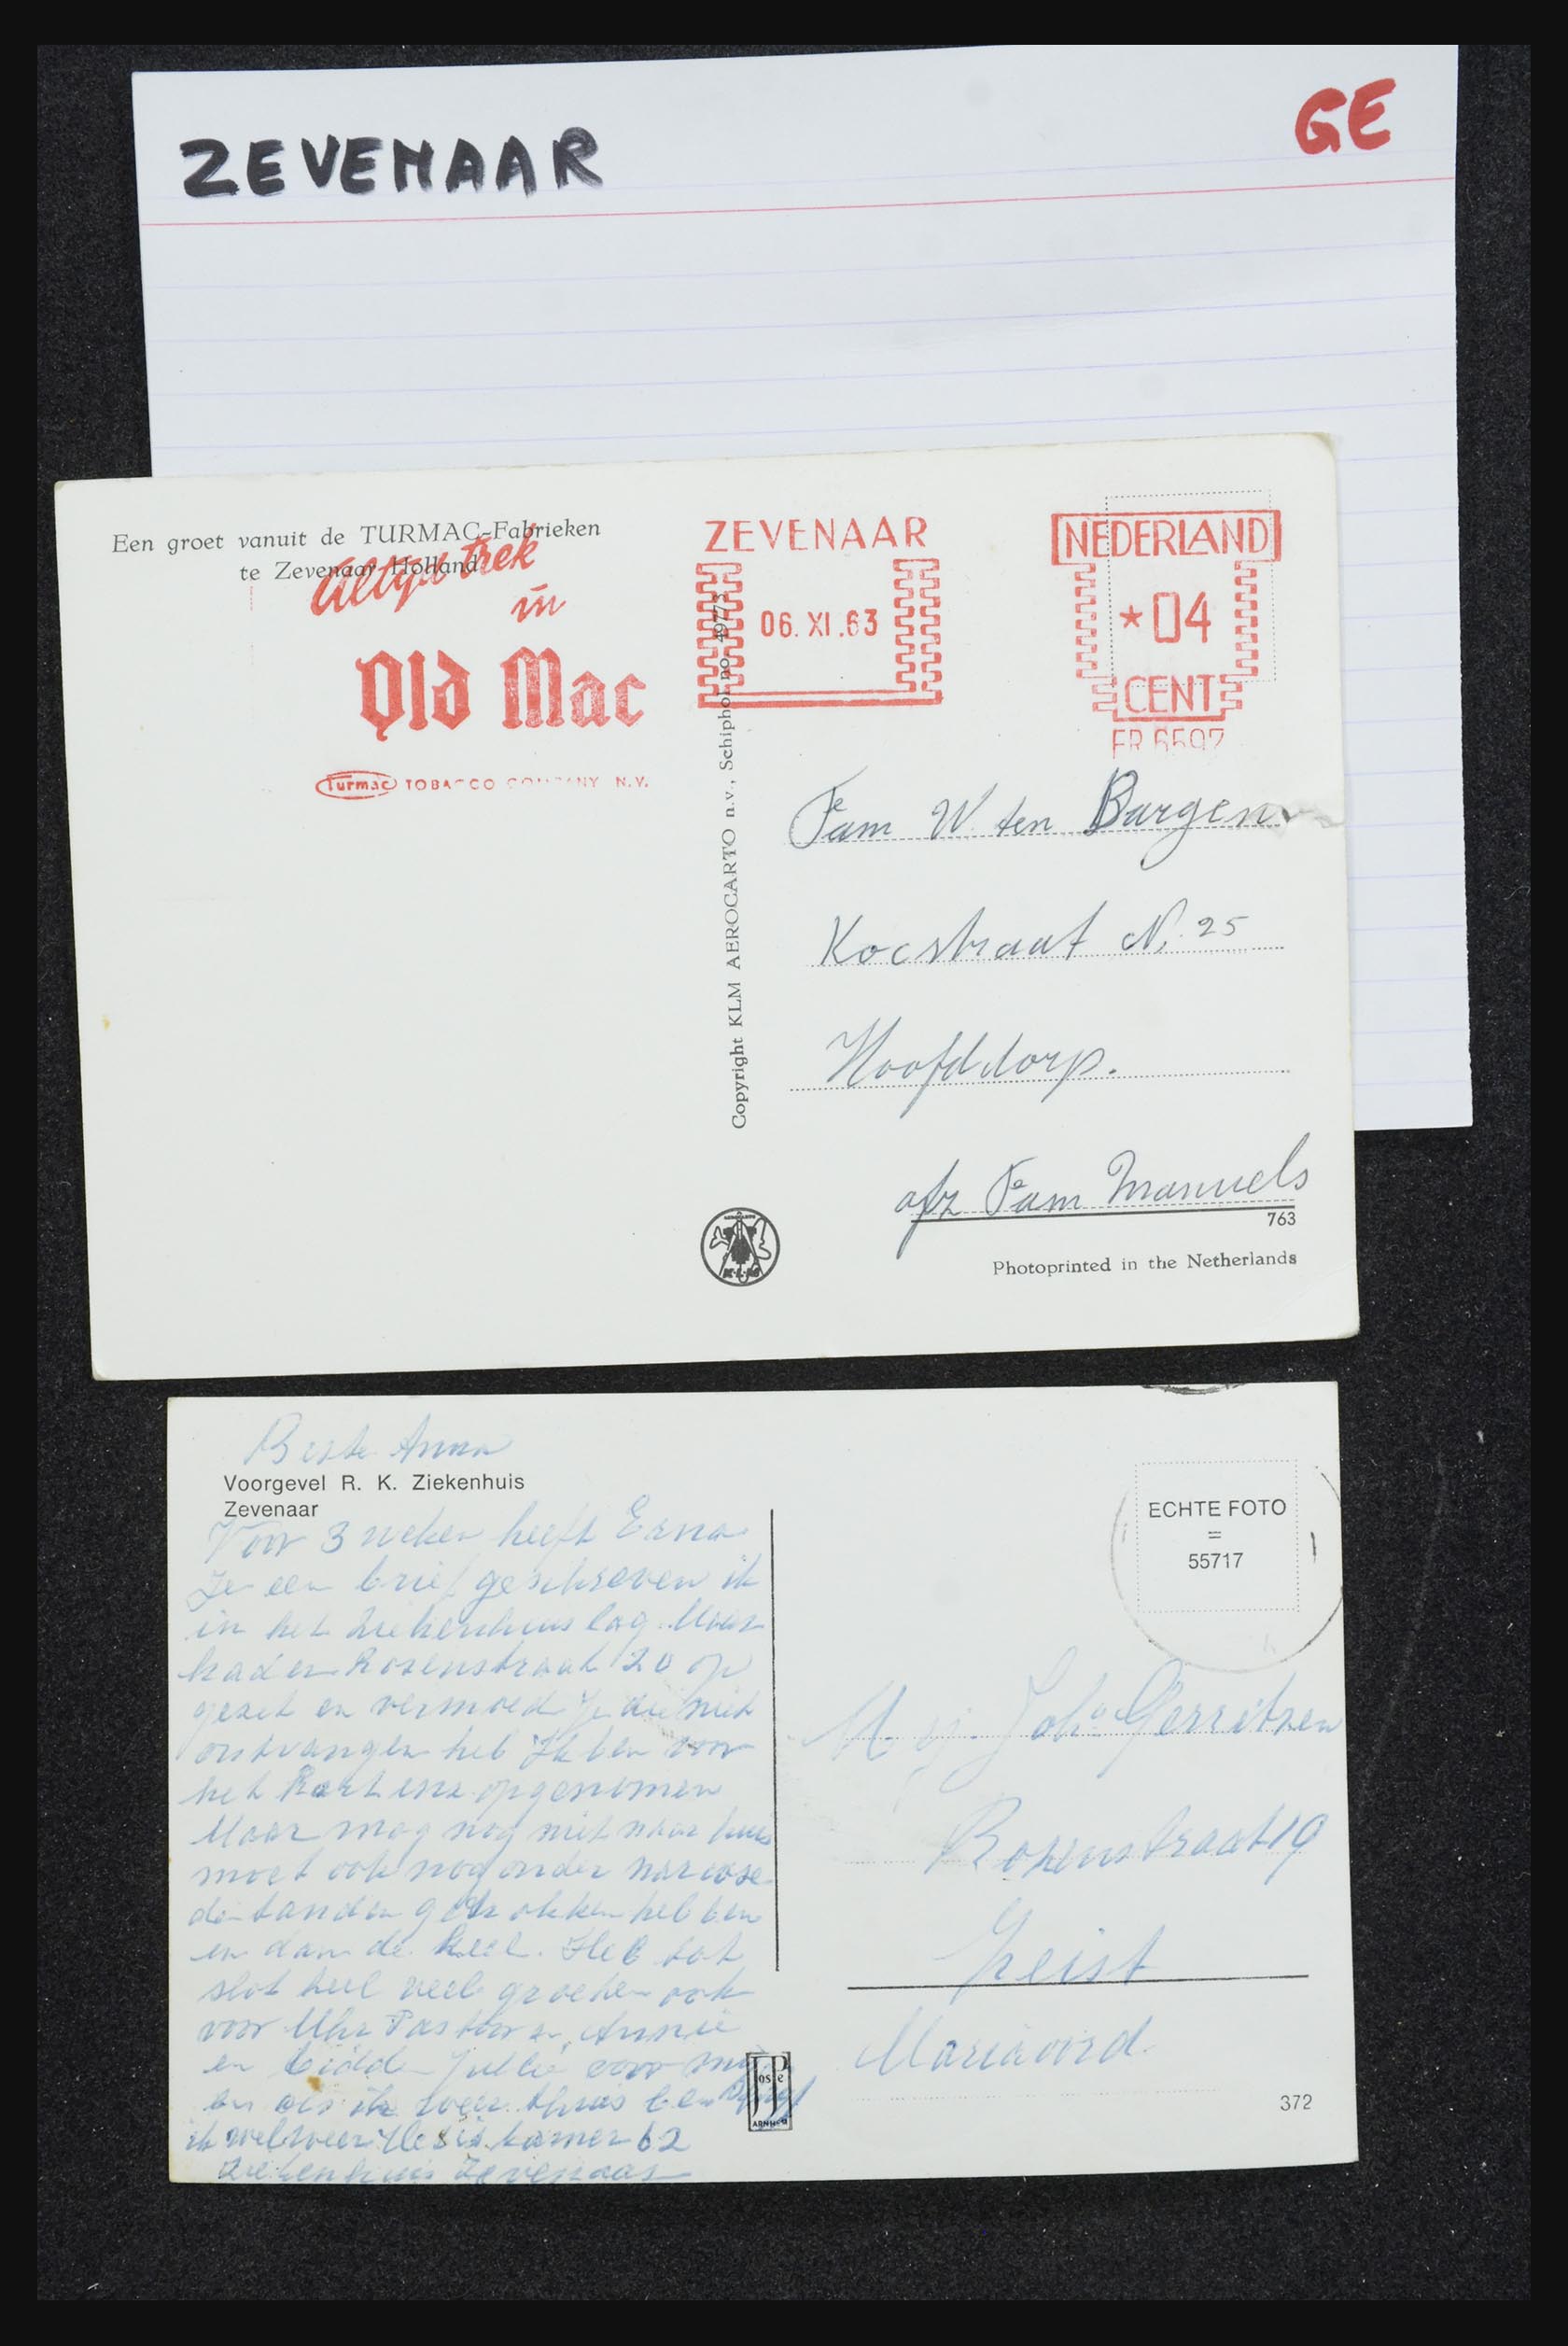 ZEVENAAR
GE
Een groet vanuit de TURMAC-Fabrieken
te Zevenaar Holland
Altijd trek
in
Old Mac
Turmac TOBACCO COMPANY N.V.
ZEVENAAR
06.XI.63
NEDERLAND
*04
CENT
FR 6597
Copyright KLM AEROCARTO n.v., Schiphol no. 49773
Fam W. ten Burgen
Kocstraat N. 25
Hoofddorp.
afz Fam Manuels
763
Photoprinted in the Netherlands
K·L·M
Beste Anna
Voorgevel R. K. Ziekenhuis
Zevenaar
Voor 3 weken heeft Erna
Je een brief geschreven ik
in het ziekenhuis lag. Maar
had er Rozenstraat 20 op
gezet en vermoed Je die niet
ontvangen heb Ik ben voor
het opgenomen
Maar mag nog niet naar huis
moet ook nog onder narcose
de tanden getrokken hebben
en dan de keel. Heb tot
slot heel veel groeten ook
voor Uhr Pastoor en Annie
en bidd Jullie voor mij
en als ik weer thuis ben
ik wel weer kamer 62
Ziekenhuis Zevenaar
ECHTE FOTO
=
55717
Mej. Joha Gerritzen
Rozenstraat 19
Zeist
Mariaoord.
JosPé
ARNHEM
372